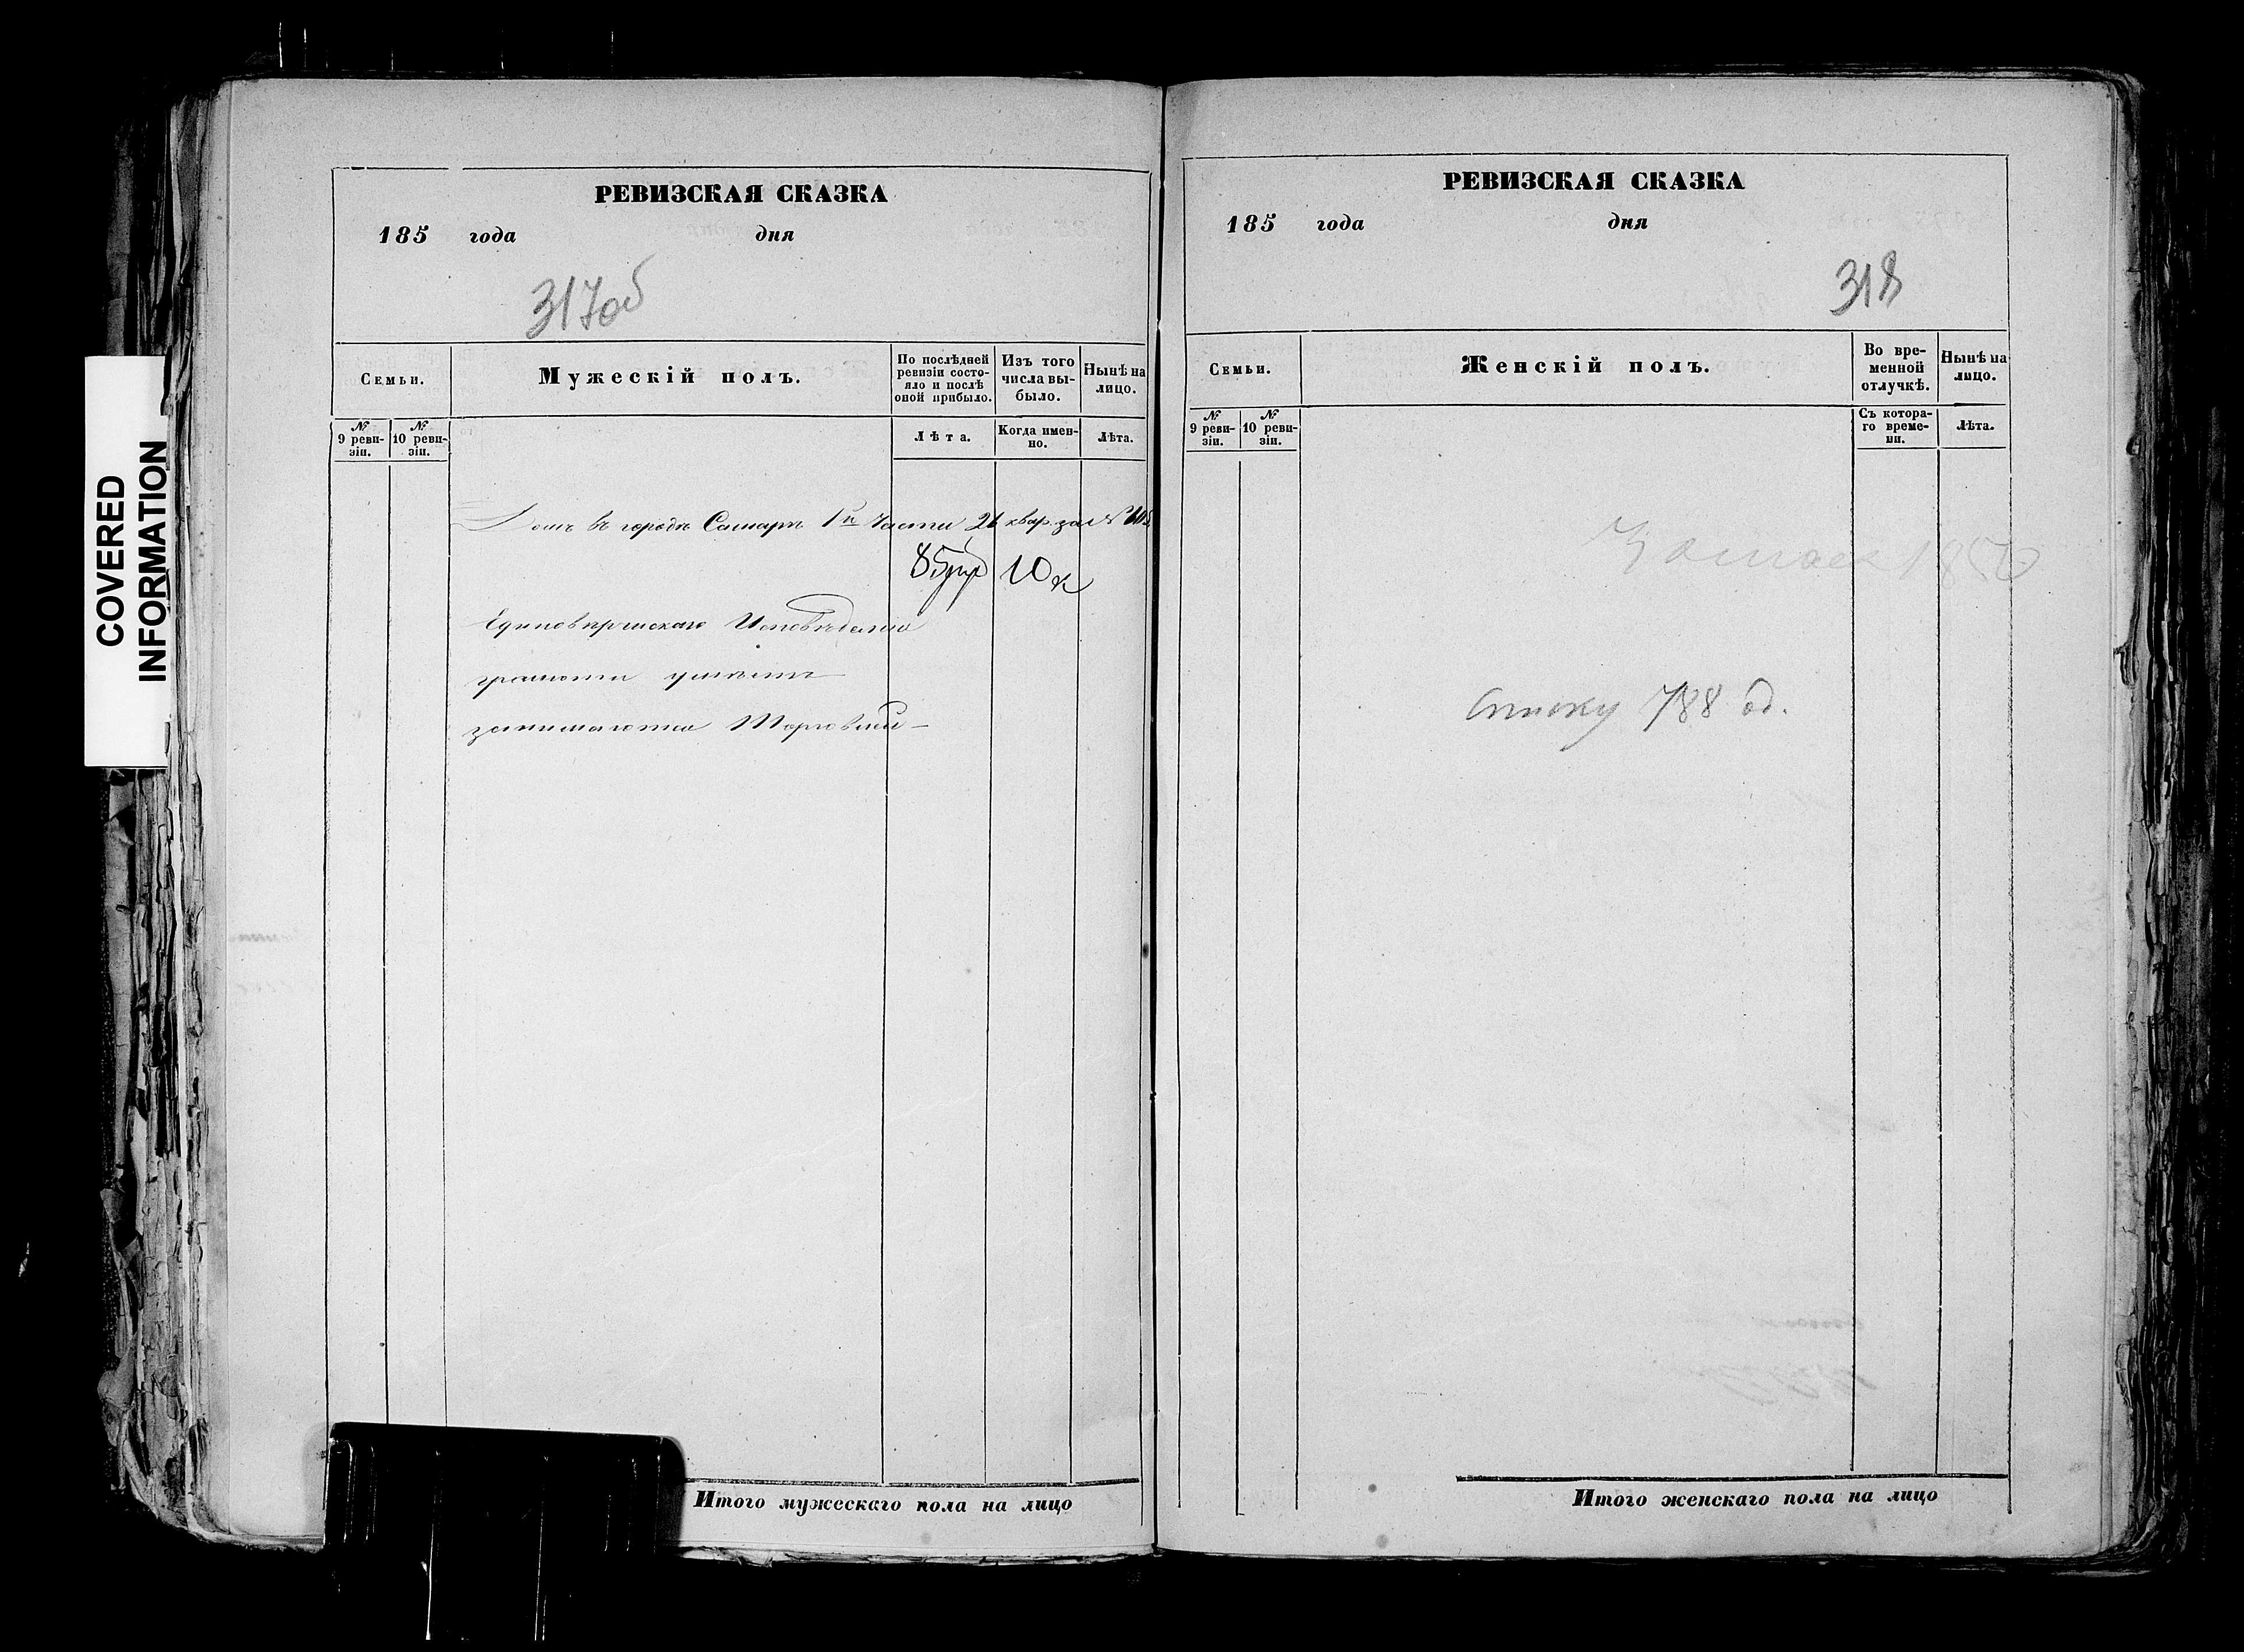 COVERED
INFORMATION
РЕВИЗСКАЯ СКАЗКА
185 года дня
317об
Семьи.
Мужескій полъ.
По послѣдней ревизіи состояло и послѣ оной прибыло.
Изъ того числа выбыло.
Нынѣ на лицо.
№ 9 ревизіи.
№ 10 ревизіи.
Лѣта.
Когда именно.
Лѣта.
Домъ въ городѣ Самарѣ 1й части 21 квар. за №
85 руб 10 к
Единовѣрческаго Исповѣданія
грамоти умѣетъ
занимаются Торговлей
Итого мужескаго пола на лицо
РЕВИЗСКАЯ СКАЗКА
185 года дня
318
Семьи.
Женскій полъ.
Во временной отлучкѣ.
Нынѣ на лицо.
№ 9 ревизіи.
№ 10 ревизіи.
Съ котораго времени.
Лѣта.
1850
списку 788 од.
Итого женскаго пола на лицо